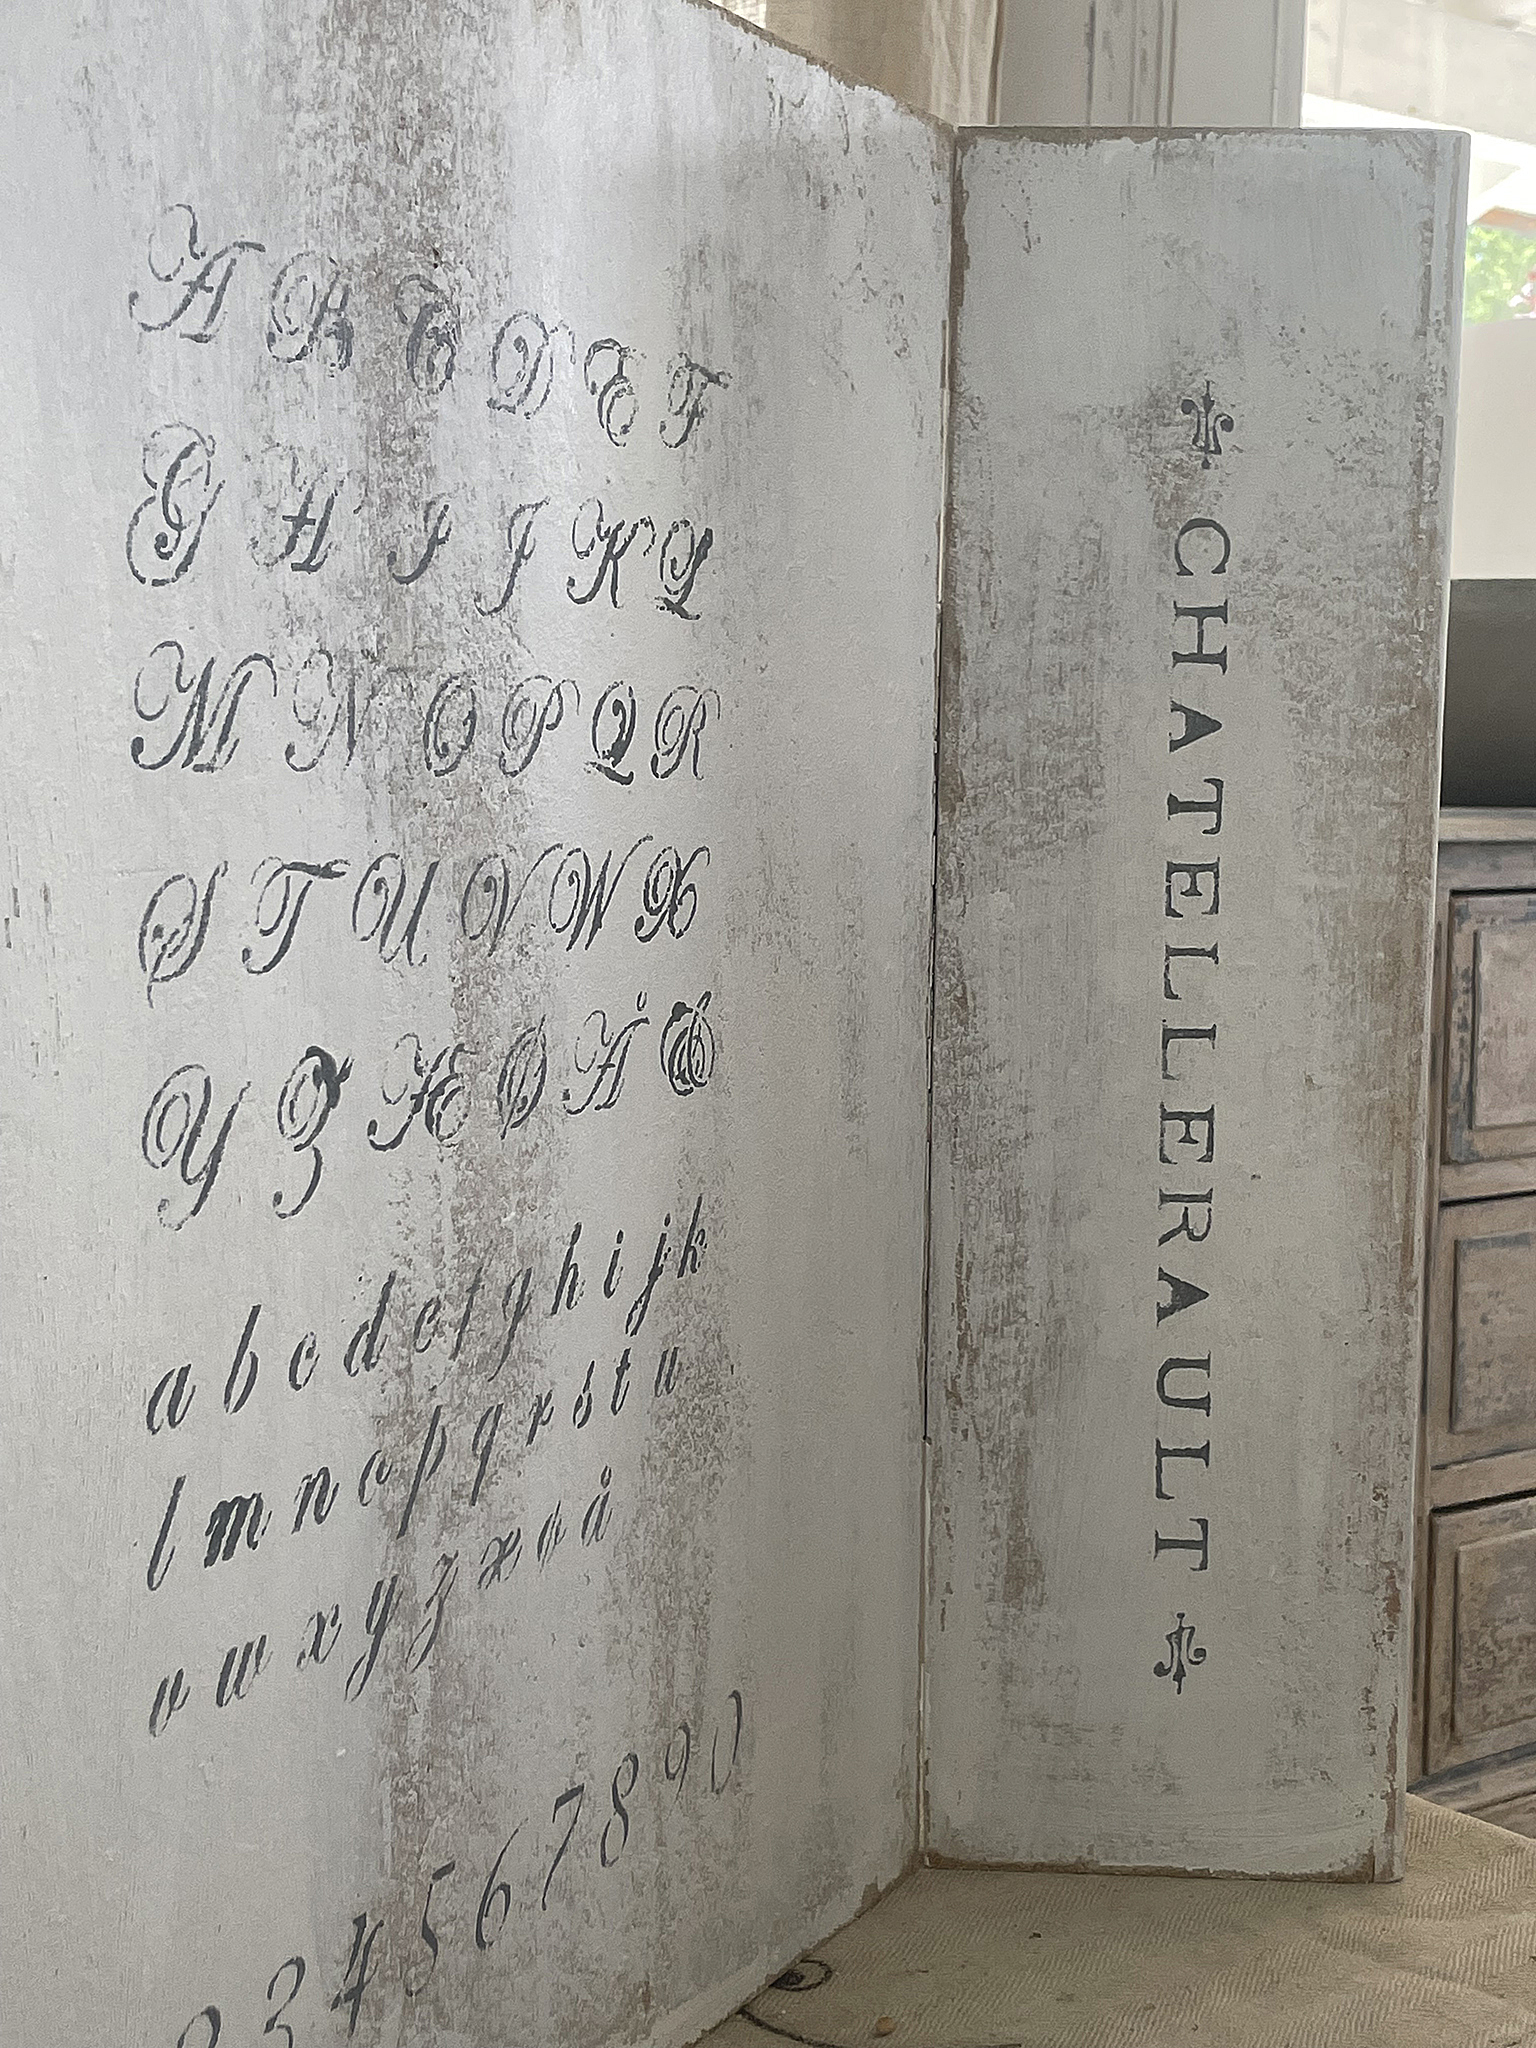 A B C D E F
G H I J K L
M N O P Q R
S T U V W X
Y Z Æ Ø Å &
a b c d e f g h i j k
l m n o p q r s t u
v w x y z æ ø å
2 3 4 5 6 7 8 9 0
CHATELLERAULT